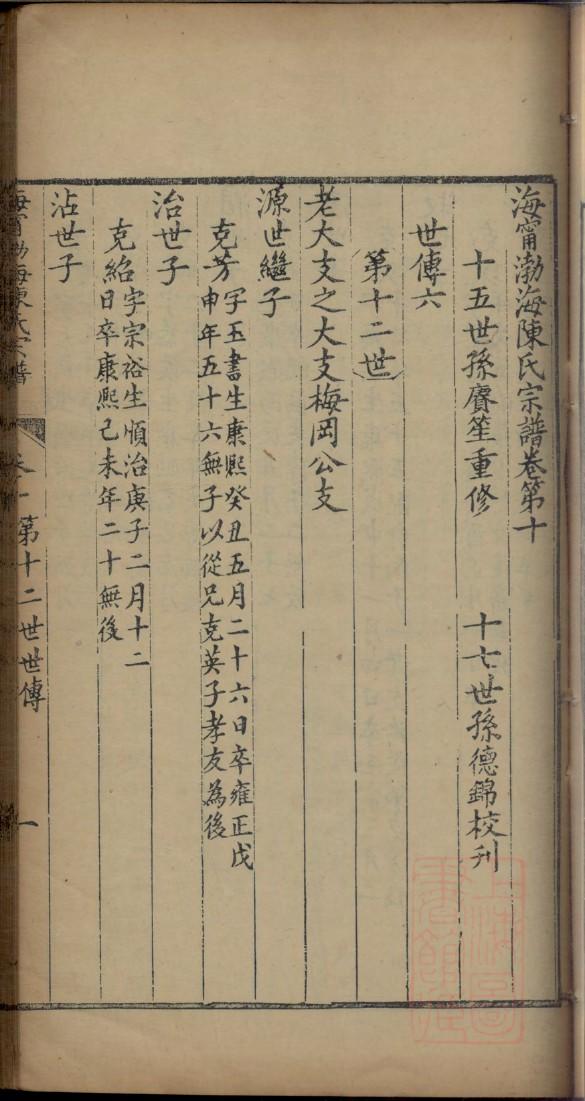 海甯渤海陳氏宗譜卷第十
十五世孫賡笙重修 十七世孫德錦校刋
世傳六
第十二世
老大支之大支梅岡公支
源世繼子
克芳字玉書生康熙癸丑五月二十六日卒雍正戊
申年五十六無子以從兄克英子孝友為後
治世子
克紹字宗裕生順治庚子二月十二
日卒康熙己未年二十無後
沾世子
海甯渤海陳氏宗譜 卷十 第十二世世傳 一
上海圖書館藏